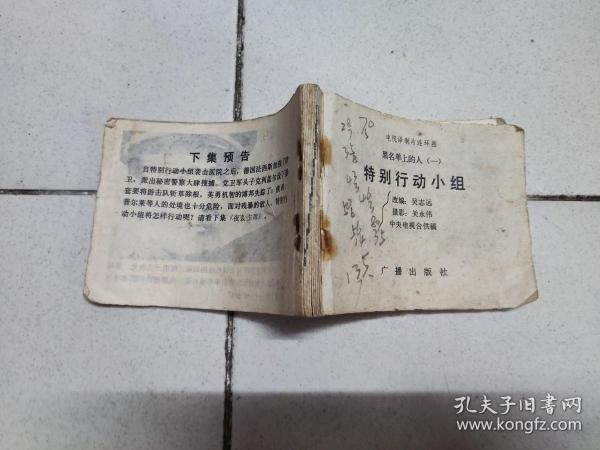 下集预告
自特别行动小组袭击医院之后，德国法西斯加强了警
卫，派出秘密警察大肆搜捕。党卫军头子克利盖尔设下
套要将游击队斩草除根。英勇机智的博苏失踪了；
普尔莱等人的处境也十分危险，面对残暴的敌人，特别行
动小组将怎样行动呢？请看下集
电视译制片连环画
黑名单上的人（一）
特别行动小组
改编：吴志远
摄影：关永伟
中央电视台供稿
广播出版社
孔夫子旧书网
www.kongfz.com